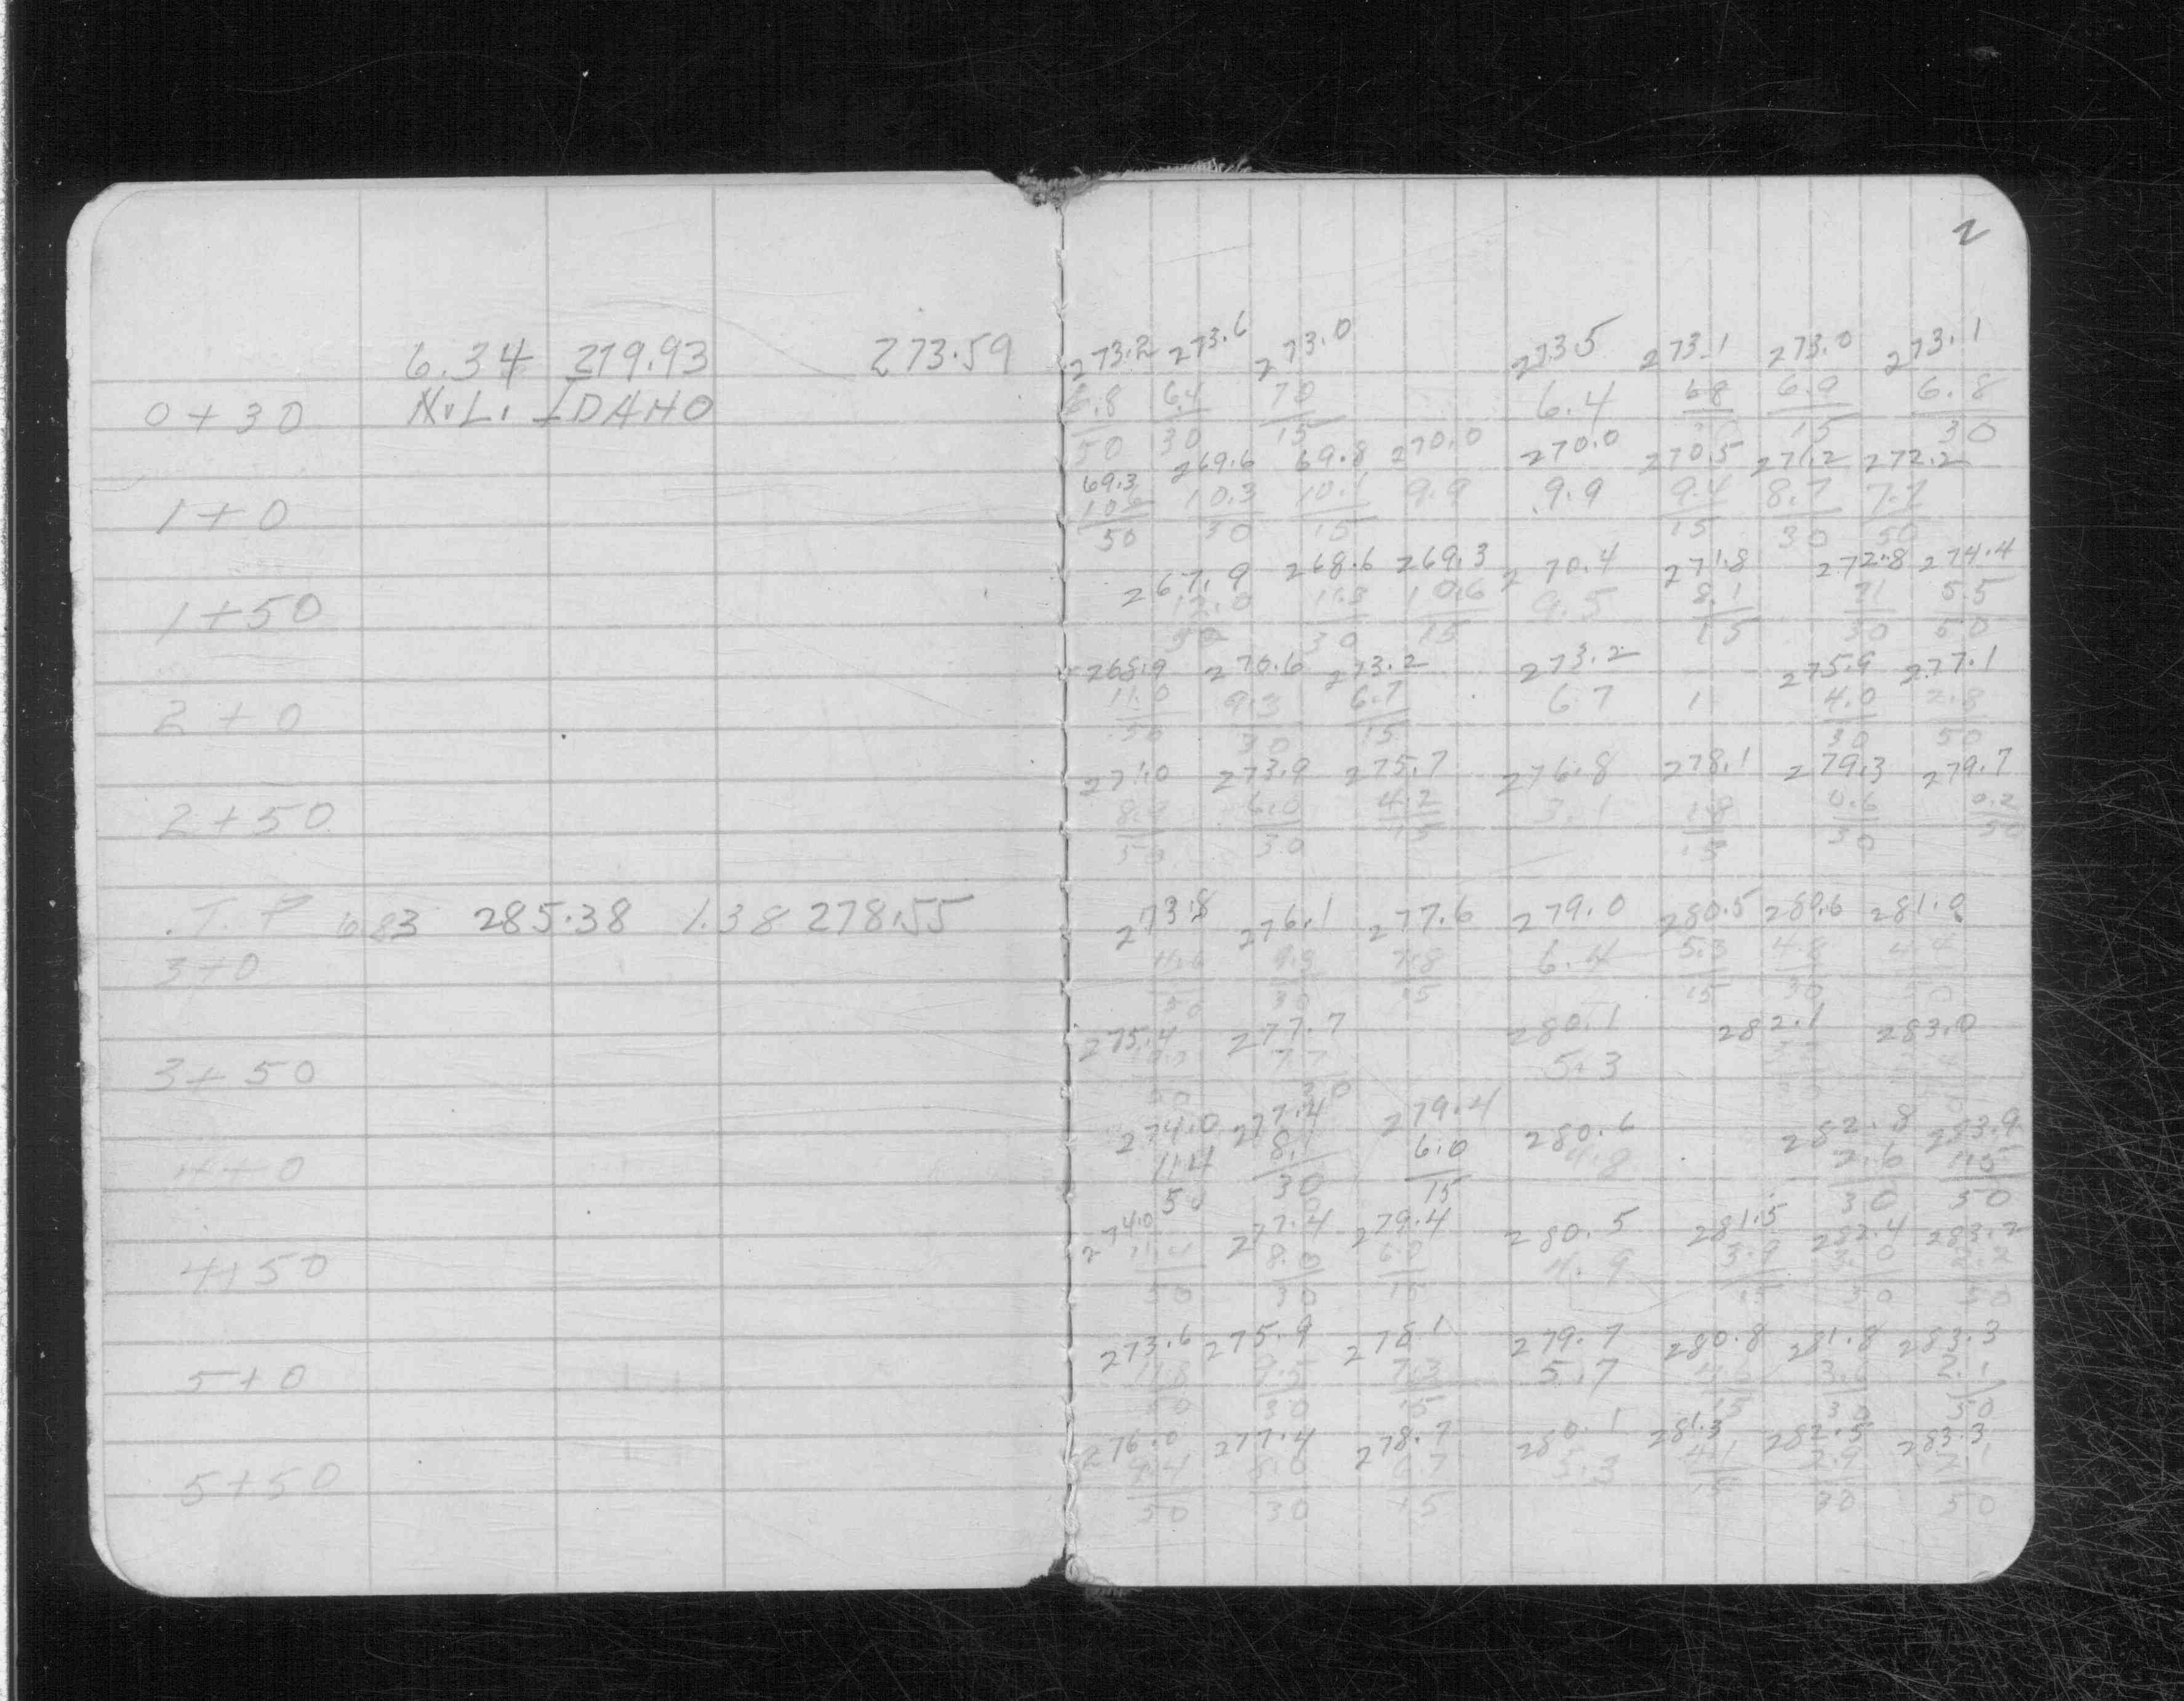 2
6.34 279.93 273.59
0+30 N.L. IDAHO
1+0
1+50
2+0
2+50
T.P 6.83 285.38 1.38 278.55
3+0
3+50
4+0
4+50
5+0
5+50
273.2 273.6 273.0 273.5 273.1 273.0 273.1
6.8 6.4 7.0 6.4 6.8 6.9 6.8
50 30 15 15 30
69.3 269.6 69.8 270.0 270.0 270.5 271.2 272.2
10.3 10.1 9.9 9.9 9.4 8.7 7.7
50 30 15 15 30 50
267.9 268.6 269.3 270.4 271.8 272.8 274.4
12.0 11.3 10.6 9.5 8.1 7.1 5.5
50 30 15 15 30 50
268.9 270.6 273.2 273.2 275.9 277.1
11.0 9.3 6.7 6.7 1 4.0 2.8
50 30 15 30 50
271.0 273.9 275.7 276.8 278.1 279.3 279.7
8.9 6.0 4.2 3.1 1.8 0.6 0.2
50 30 15 15 30 50
273.8 276.1 277.6 279.0 280.5 280.6 281.0
11.6 9.3 7.8 6.4 5.3 4.8 4.4
50 30 15 15 30 50
275.4 277.7 280.1 282.1 283.0
7.7 5.3
50 30
274.0 277.4 279.4 280.6 282.8 283.9
11.4 8.1 6.0 4.8 2.6 1.5
50 30 15 30 50
274.0 277.4 279.4 280.5 281.5 282.4 283.2
11.4 8.0 6.0 4.9 3.9 3.0 2.2
50 30 15 15 30 50
273.6 275.9 278.1 279.7 280.8 281.8 283.3
11.8 9.5 7.3 5.7 3.6 2.1
50 30 15 15 30 50
276.0 277.4 278.7 280.1 281.3 282.5 283.3
9.4 8.0 6.7 5.3 4.1 2.9 2.1
50 30 15 15 30 50